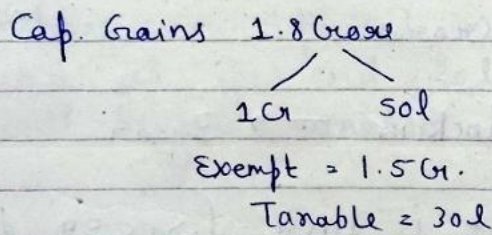 Cap. Gains 1.8 Crore
1Cr 50l
Exempt = 1.5 Cr.
Taxable = 30l